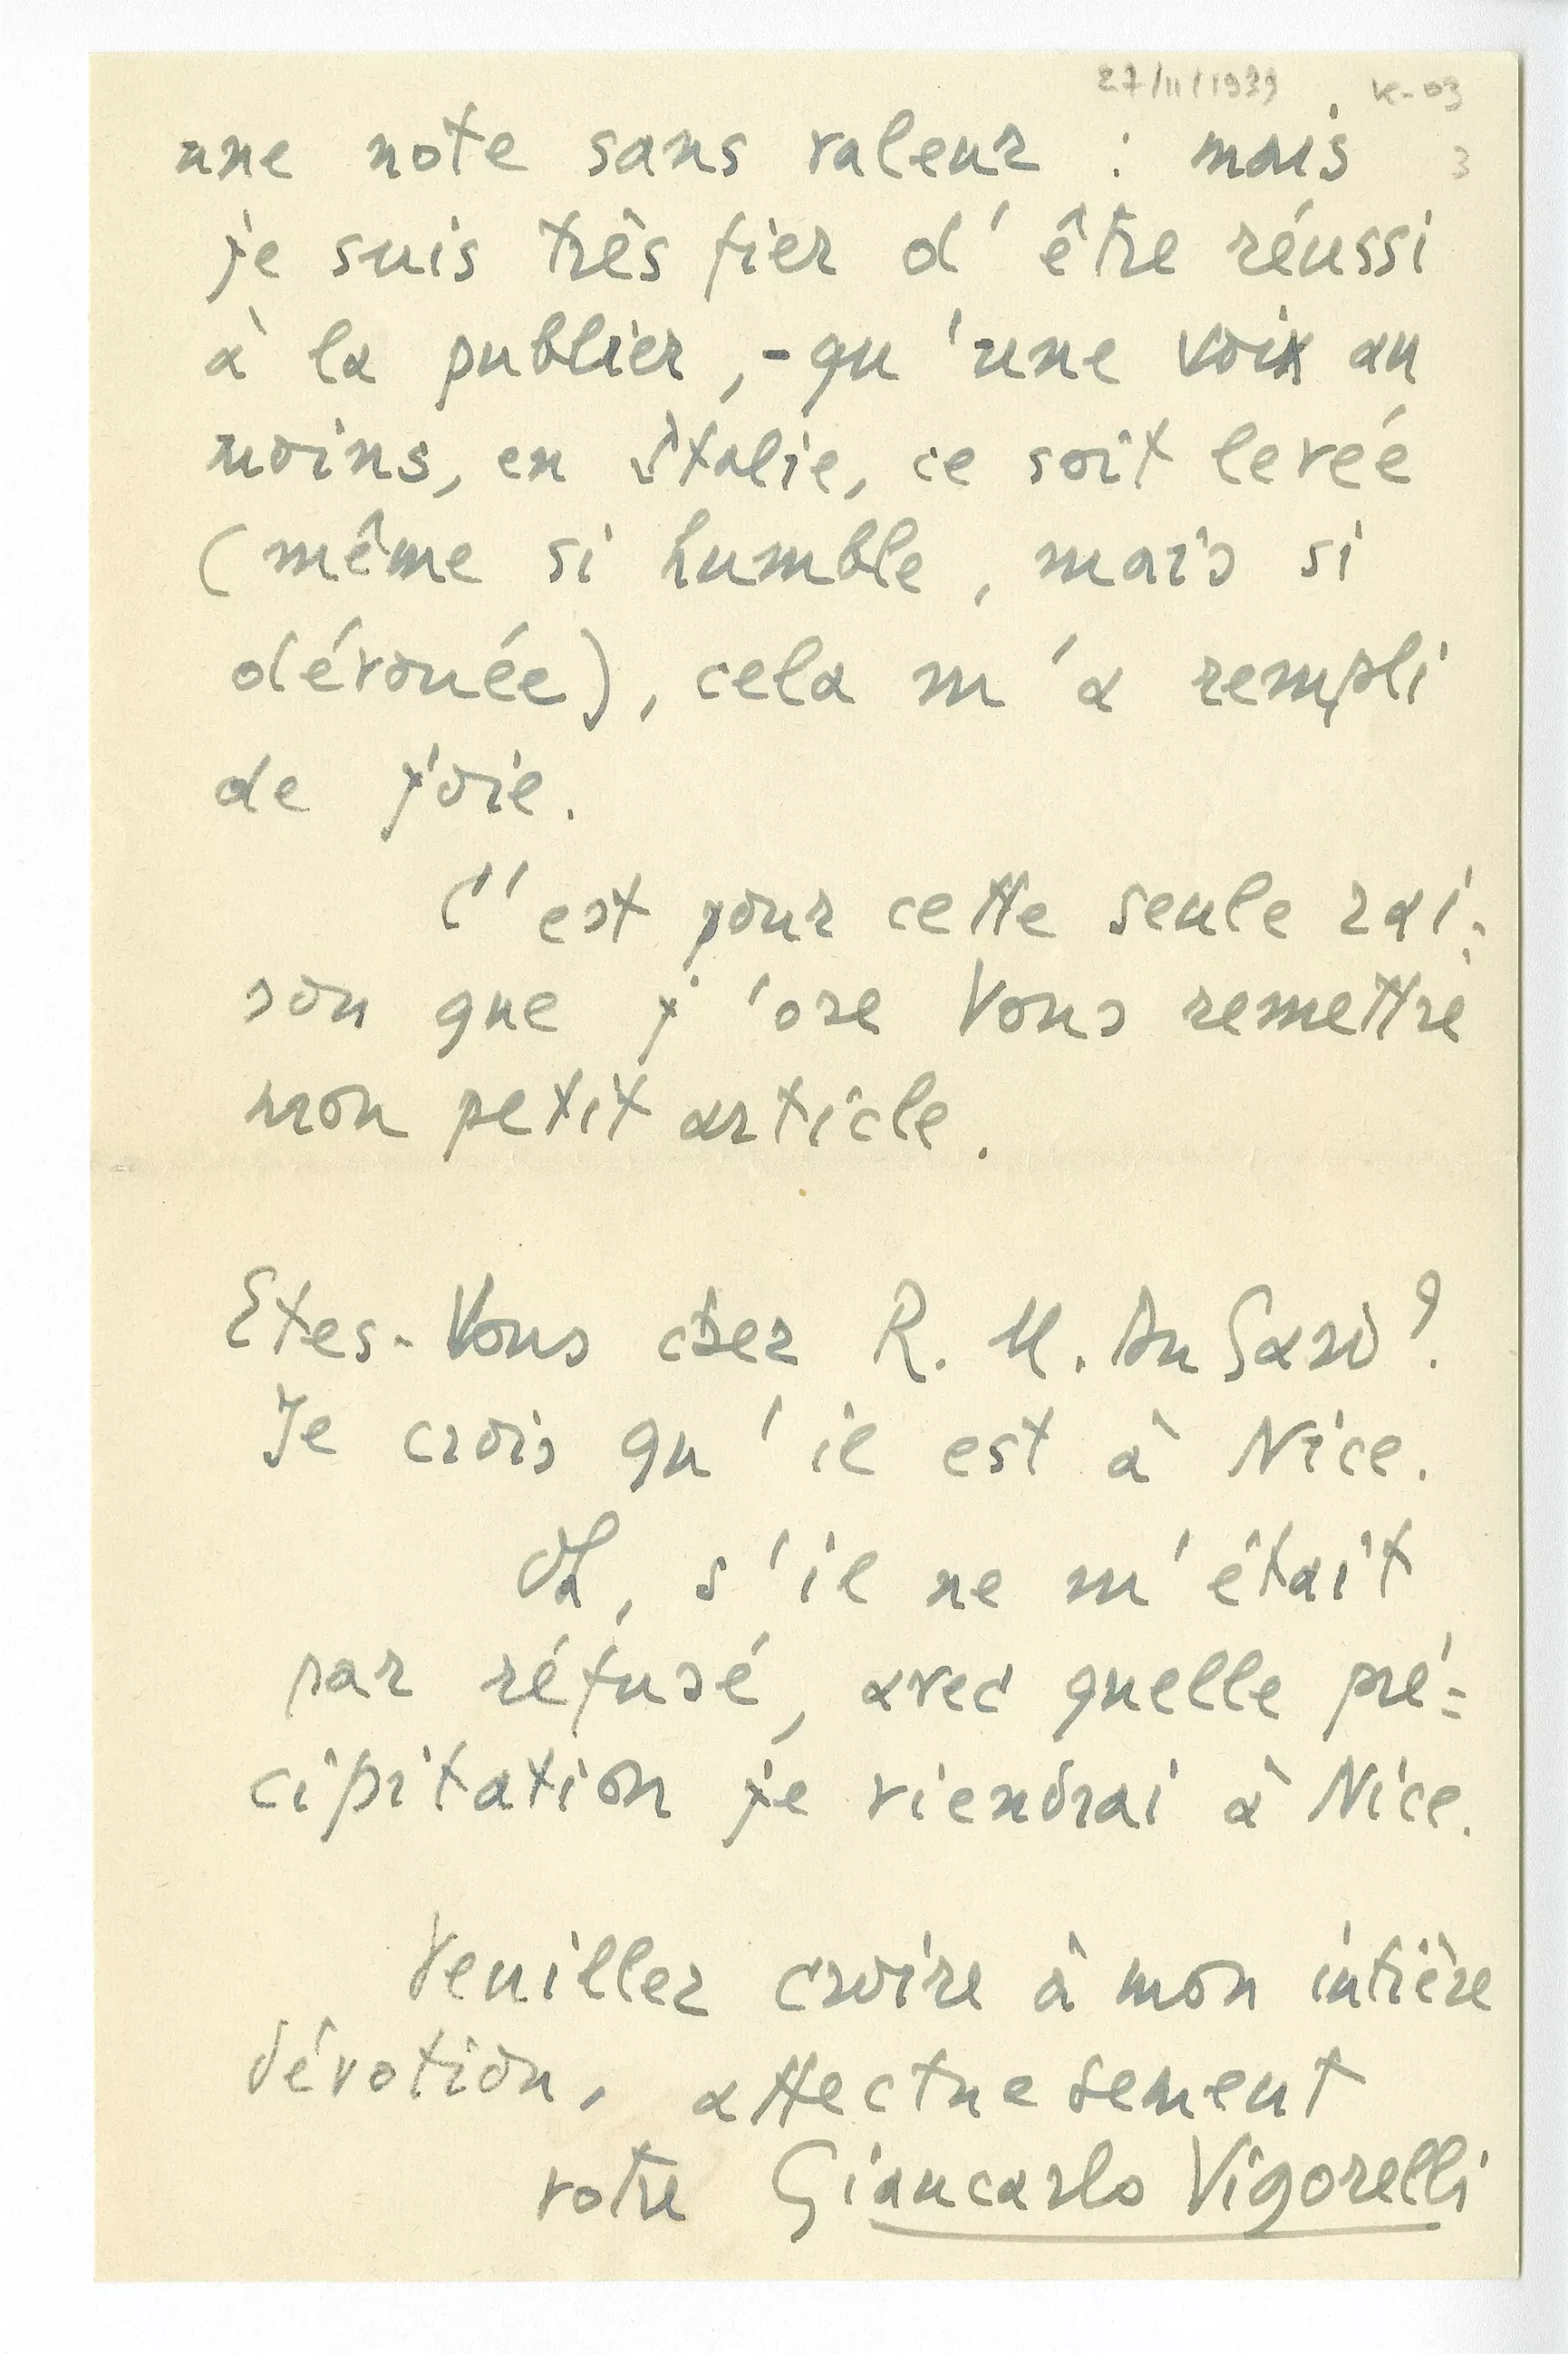 27/11/1939 K-03
3
une note sans valeur : mais
je suis très fier d'être réussi
à la publier, - qu'une voix au
moins, en Italie, ce soit levée
(même si humble, mais si
dévouée), cela m'a rempli
de joie.
C'est pour cette seule rai=
son que j'ose Vous remettre
mon petit article.
Etes-Vous chez R. M. Du Gard?
Je crois qu'il est à Nice.
Oh, s'il ne m'était
par réfusé, avec quelle pré=
cipitation je viendrai à Nice.
Veuillez croire à mon intière
dévotion, affectuesement
votre Giancarlo Vigorelli